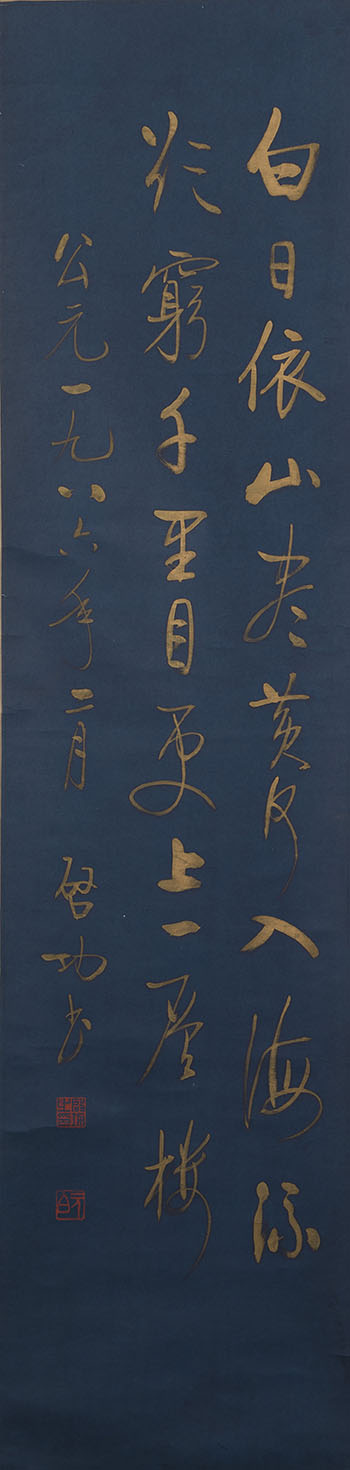 白日依山尽黄河入海流
欲穷千里目更上一层楼
公元一九八六年二月
启功书
启功
元白